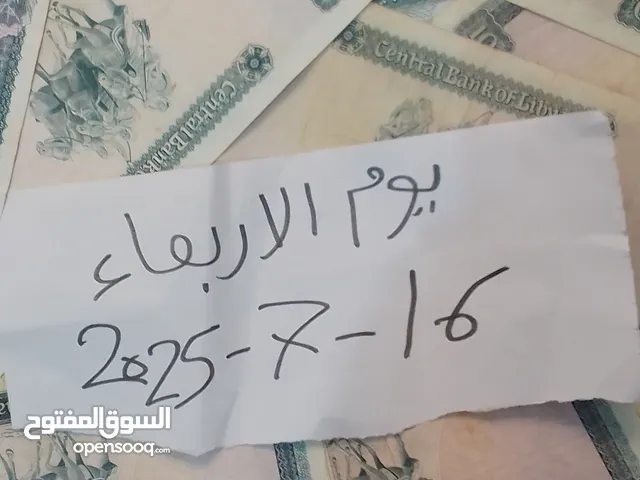 Central Bank
Central Bank of Libya
10
يوم الاربعاء
2025-7-16
السوق المفتوح
opensooq.com